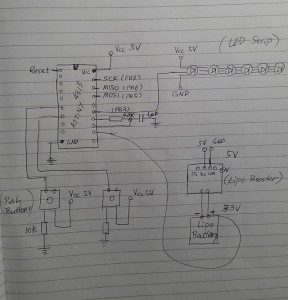 Vcc 5V
Vcc 5V
(LED Strip)
Reset
Vcc
SCK (PB7)
MISO (PB6)
MOSI (PB5)
ATtiny 2313
(PB3)
GND
GND
5V GND
5V
(Lipo Booster)
Push
Button
Vcc 5V
Vcc 5V
3.3V
10K
Lipo
Battery